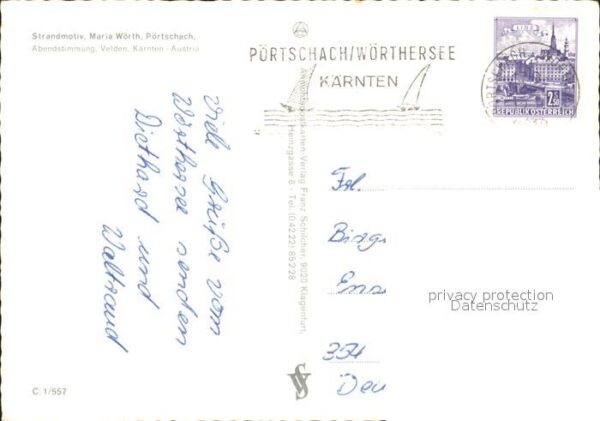 Strandmotiv, Maria Wörth, Pörtschach,
Abendstimmung, Velden, Kärnten - Austria
PÖRTSCHACH/WÖRTHERSEE
KÄRNTEN
LINZ
2.50
REPUBLIK ÖSTERREICH
Viele Grüße vom
Wörthersee senden
Diethard und
Waltraud
Ansichtskarten-Verlag Franz Schilcher, 9020 Klagenfurt,
Heinzgasse 8 - Tel. (04222) 85228
Frl.
privacy protection
www.oldthing.de
354
C. 1/557